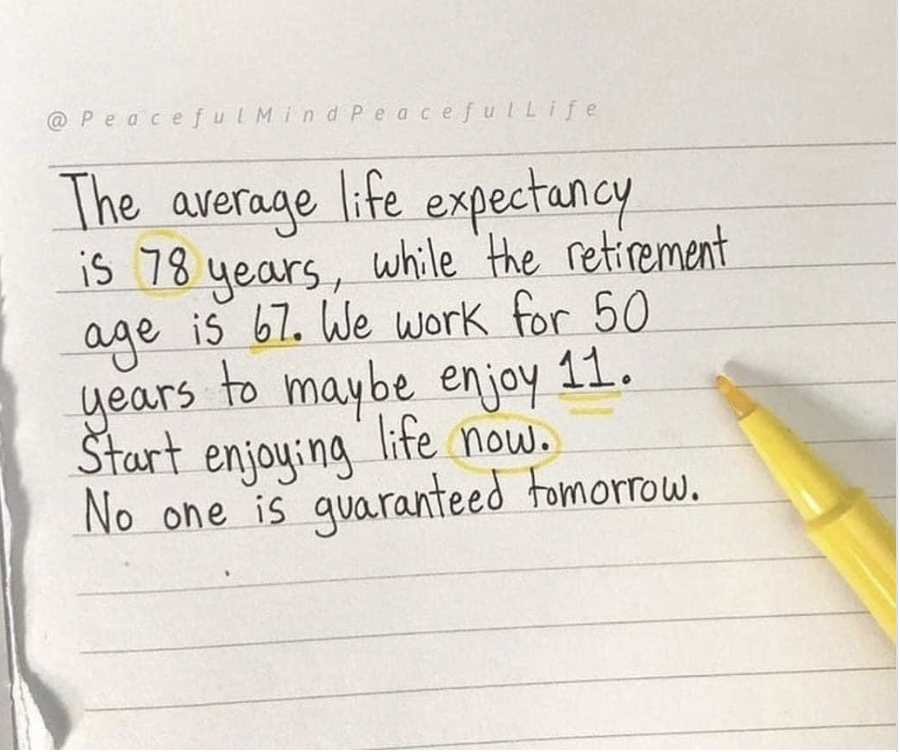 @PeacefulMindPeacefulLife
The average life expectancy
is 78 years, while the retirement
age is 67. We work for 50
years to maybe enjoy 11.
Start enjoying life now.
No one is guaranteed tomorrow.